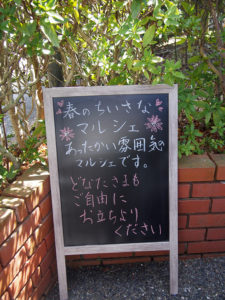 春のちいさな
マルシェ
あったかい雰囲気の
マルシェです。
どなたさまも
ご自由に
お立ちより
ください